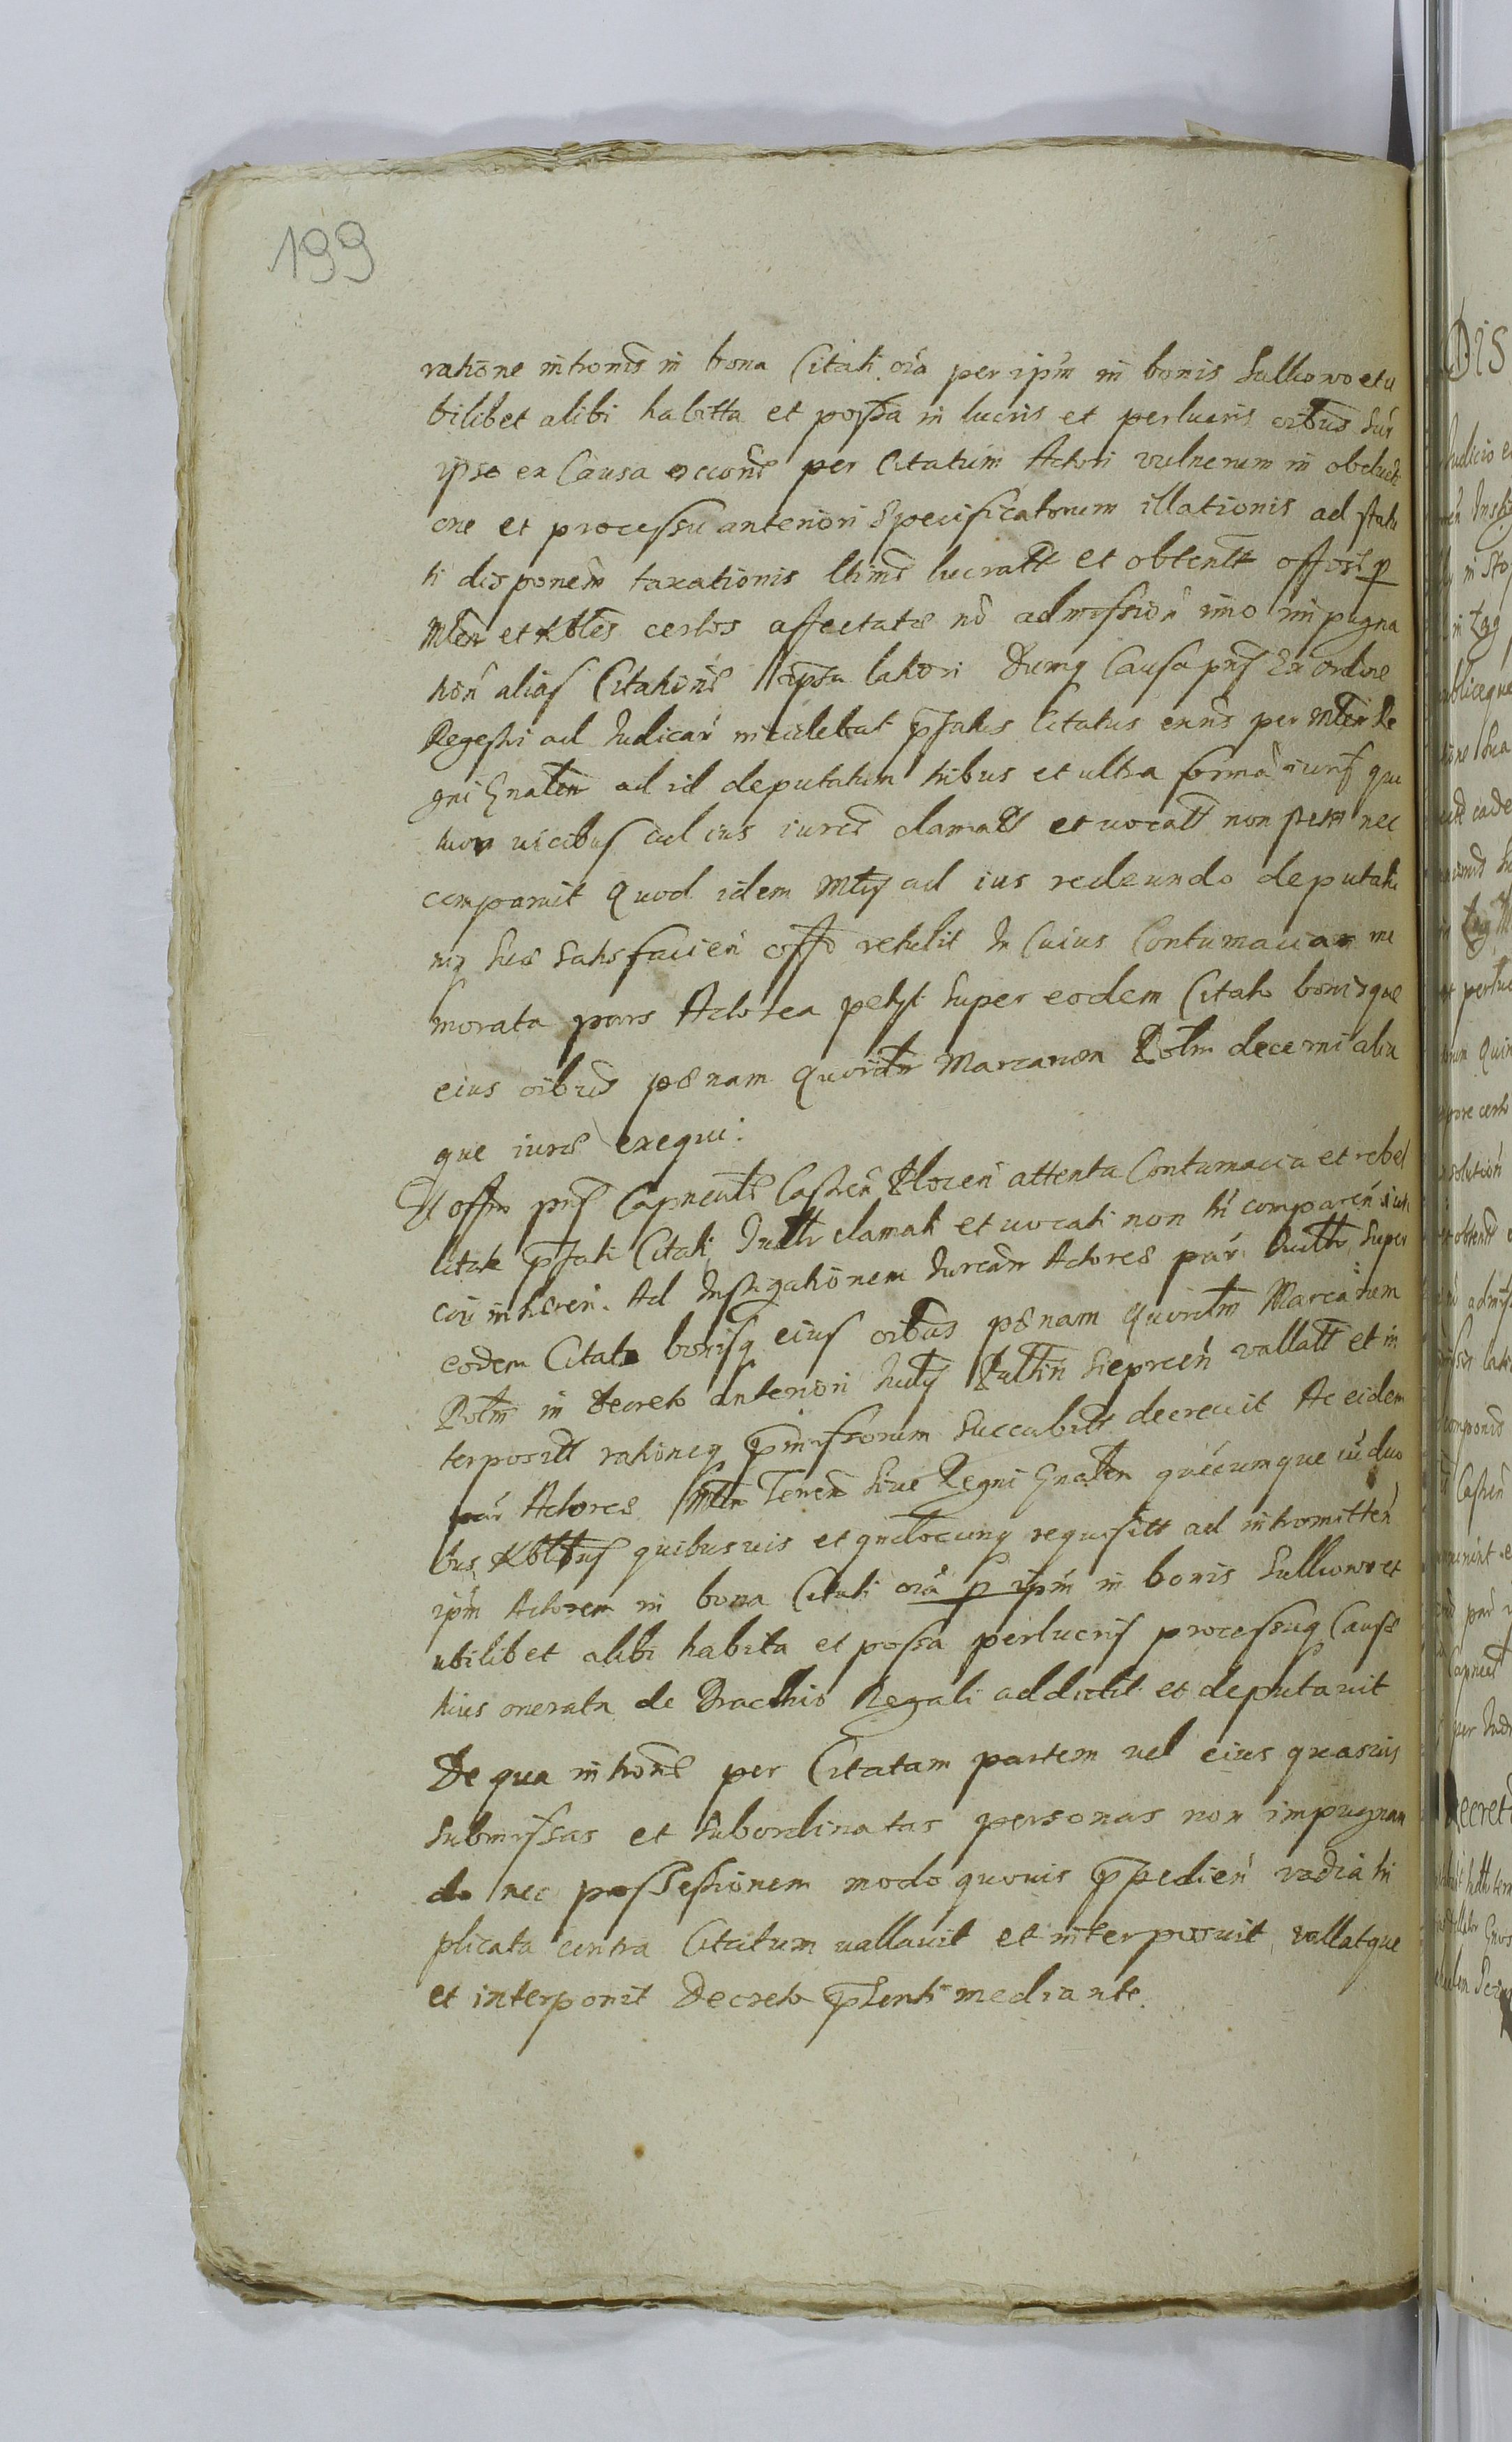 199
ratione intromis in bona Citati oia per ipm in bonis Sulkowo et u
bilibet alibi habitta et possa in lucris et perlucris oibus sur
ipso ex Causa occone per Citatum Actori vulnerum in obducti
one et processu anteriori specificatorum illationis ad statu
ti disponem taxationis ltime lucratt et obtentt offose p
Mlem et Kbles certos affectatæ no admission imo impugna
tion alias Citatione ipsa latiori Dumq Causa pns Ex ordine
Regestri ad Judicar incidebat pfatus Citatus enns per Mlem Re
gni Gnalem ad id deputatum tribus et ultra forma iuris qua
tuor vicibus ad ius iurcd clamatt et vocatt non stetit nec
comparuit Quod idem Mlis ad ius redeundo deputati
niq suæ satisfacien offo retulit In Cuius Contumaciam me
morata pars Actorea petyt super eodem Citato bonisque
eius oibus pænam Quordm Marcarum Polm decerni aliu
que iuræ exequi.
Et offm pns Capneale Castren Plocen attenta Contumacia et rebel
litate pfati Citati Inltr clamati et vocati non ti comparen iuri
coi inhæren. Ad Instigationem Iurcam Actoreæ par Inltr super
eodem Citato bonisq eius oibus pænam Quordm Marcarum
Polm in Decreto anteriori sieprcen vallatt et in
terpositt rationeq pmissorum succubitt decrevit Ac eidem
par Actoreæ Mlem Terren sive Regni Gnalem quecumque cu duo
bus Kblibus quibusvis et qndocunq requisitt ad intromitten
ipm Actorem in bona Citati oia p ipm in bonis Sulkowo et
ubilibet alibi habita et possa perlucris processuq Causæ
huius onerata de Brachio Regali addidit et deputavit
De qua introne per Citatam partem vel eius quasvis
submissas et subordinatas personas non impugnan
do nec possessionem modo quovis ppedien vadia tri
plicata contra Citatum vallavit et interposuit vallatque
et interponit Decreto pSenti mediante.